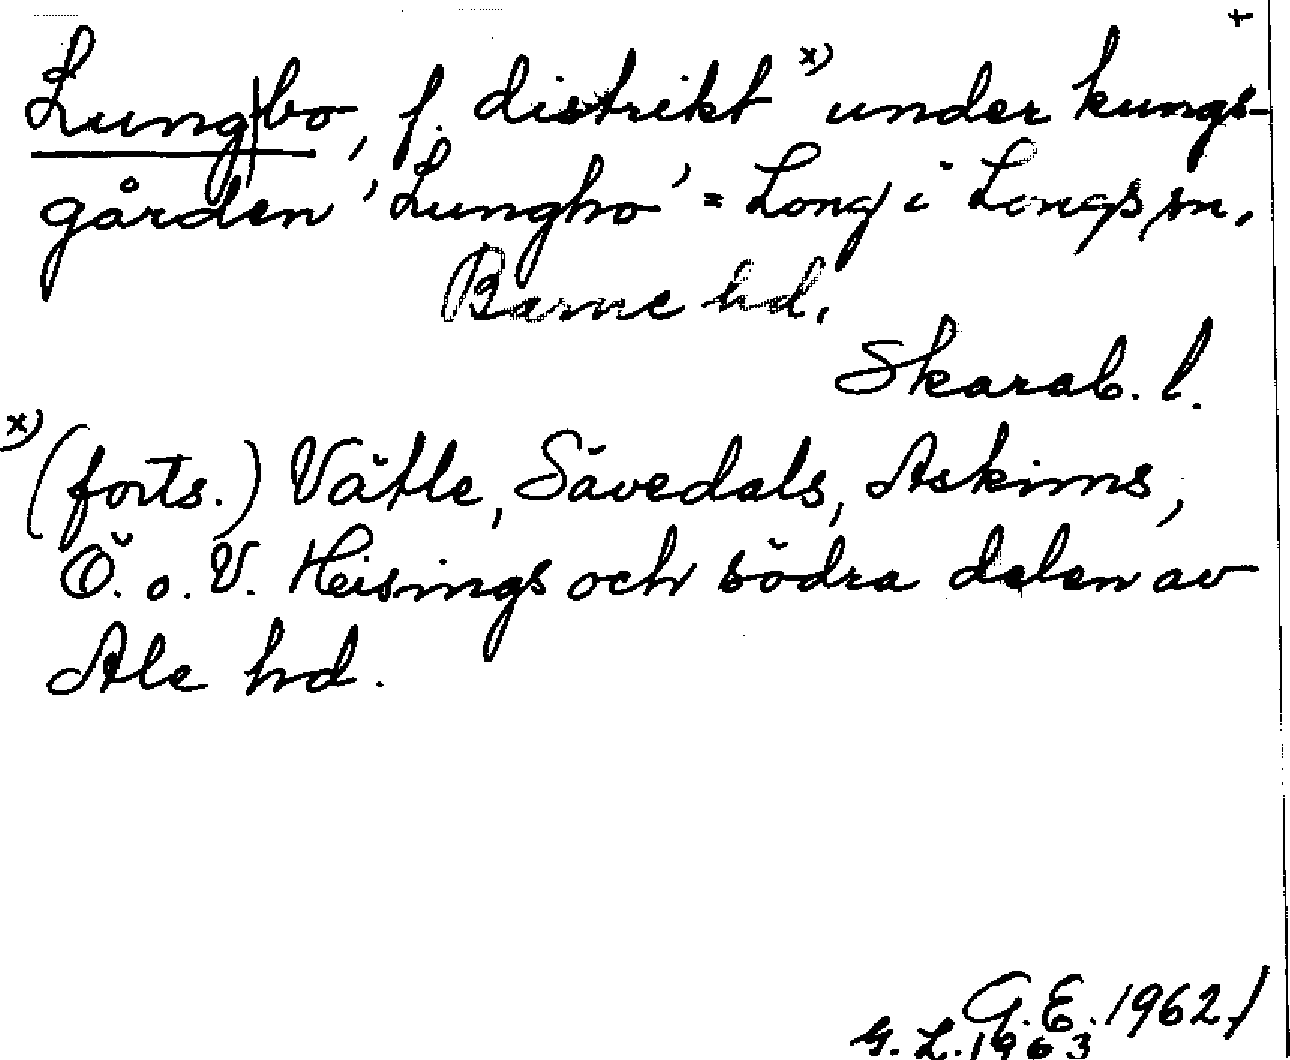 +
Lung|bo, f. distrikt x) under kungs-
gården 'Lungho' = Long i Longs sn,
Barne hd.
Skarab. l.
x) (forts.) Vätle, Sävedals, Askims,
Ö. o. V. Hisings och södra delen av
Ale hd.
G.E. 1962/
G. L. 1963